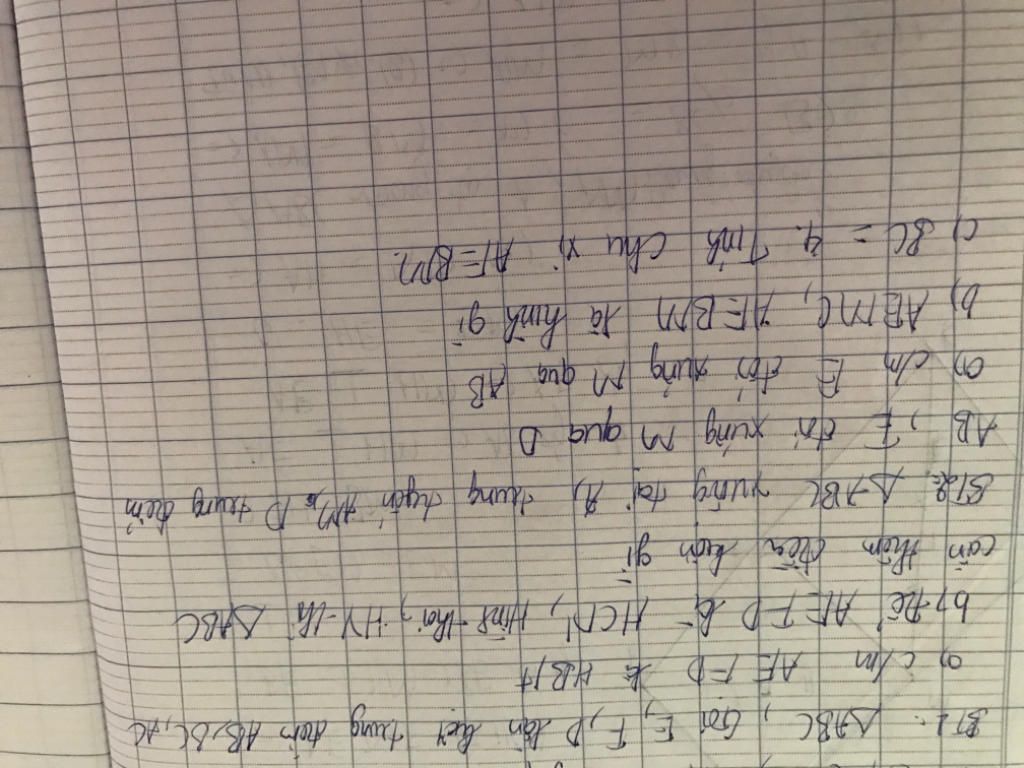 BT1. ΔABC, Gọi E, F, D lần lượt trung điểm AB, BC, AC
a) c/m AEFD là HBH
b) Để AEFD là HCN, Hình thoi, HV thì ΔABC
cần thêm điều kiện gì
BT2: ΔABC vuông tại A, trung tuyến AM, D trung điểm
AB, E đối xứng M qua D
a) c/m E đối xứng M qua AB
b) AEMC, AEBM là hình gì
c) BC = 4. Tính chu vi AEBM.